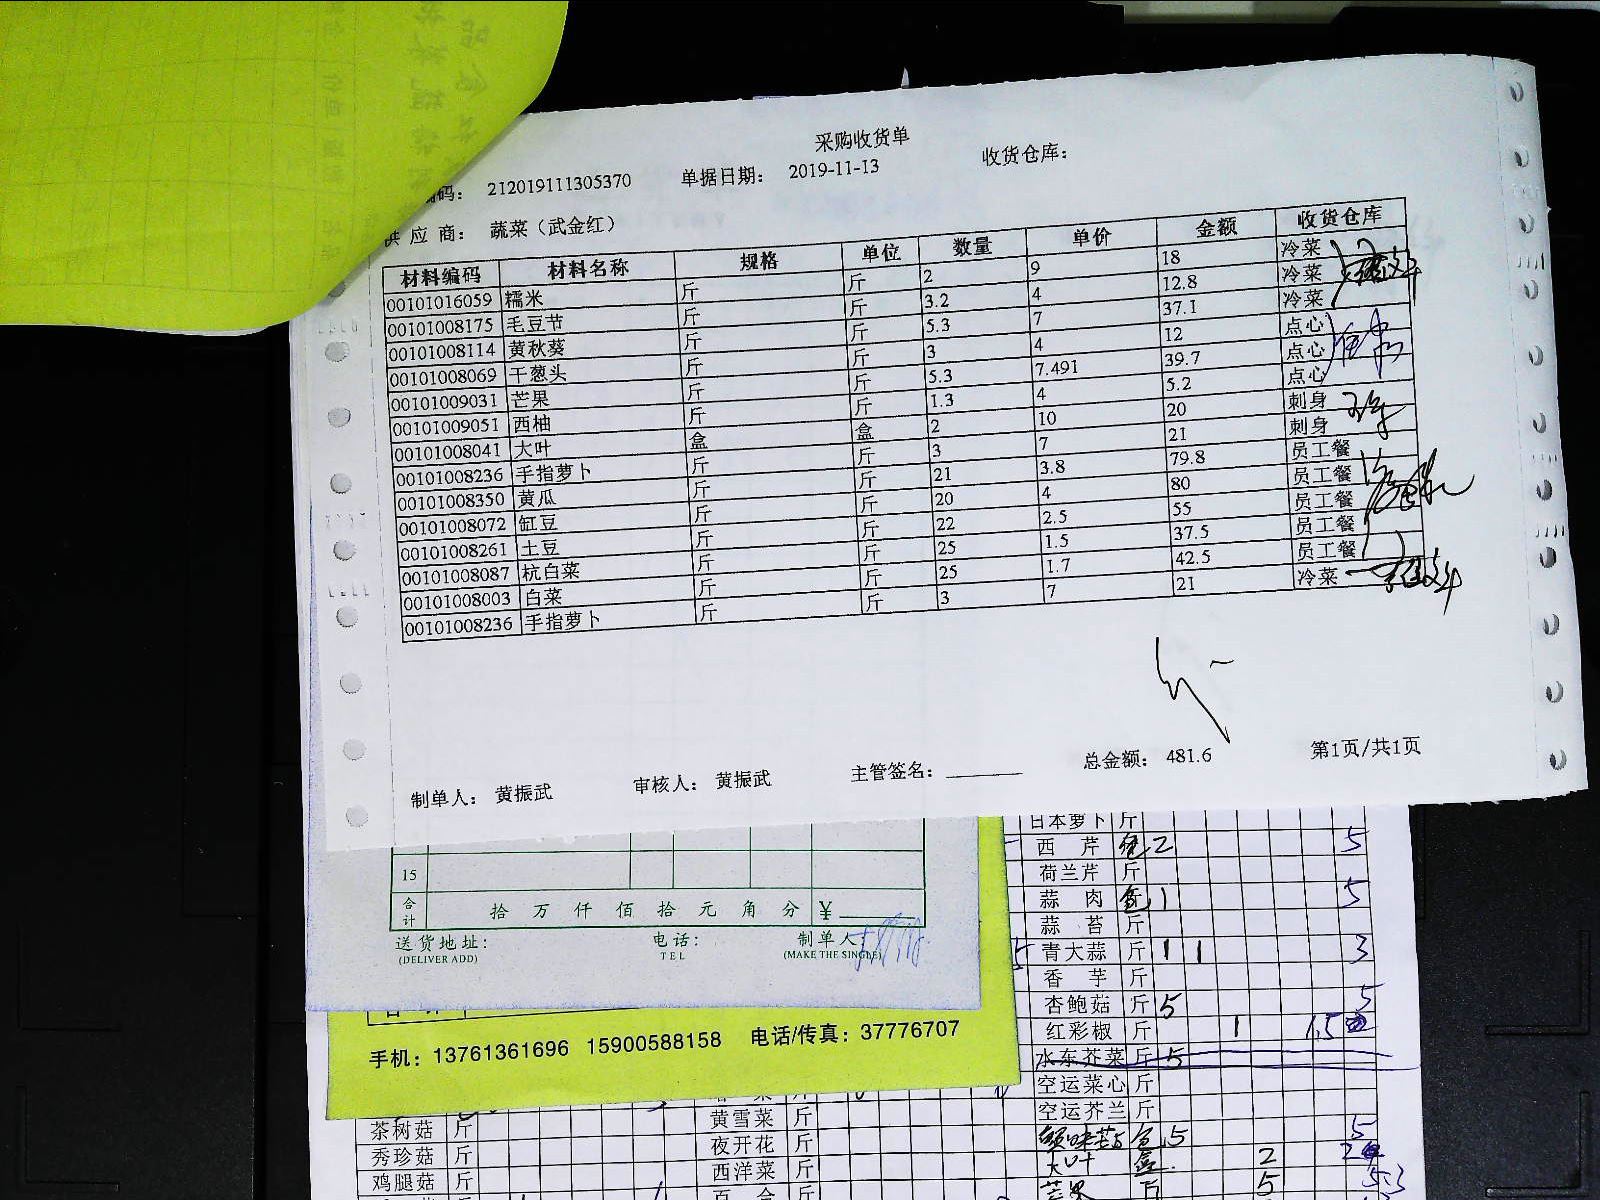 采购收货单
编码: 212019111305370 单据日期: 2019-11-13 收货仓库:
供 应 商: 蔬菜（武金红）
材料编码 材料名称 规格 单位 数量 单价 金额 收货仓库
00101016059 糯米 斤 斤 2 9 18 冷菜
00101008175 毛豆节 斤 斤 3.2 4 12.8 冷菜
00101008114 黄秋葵 斤 斤 5.3 7 37.1 冷菜
00101008069 干葱头 斤 斤 3 4 12 点心
00101009031 芒果 斤 斤 5.3 7.491 39.7 点心
00101009051 西柚 斤 斤 1.3 4 5.2 点心
00101008041 大叶 盒 盒 2 10 20 刺身
00101008236 手指萝卜 斤 斤 3 7 21 刺身
00101008350 黄瓜 斤 斤 21 3.8 79.8 员工餐
00101008072 缸豆 斤 斤 20 4 80 员工餐
00101008261 土豆 斤 斤 22 2.5 55 员工餐
00101008087 杭白菜 斤 斤 25 1.5 37.5 员工餐
00101008003 白菜 斤 斤 25 1.7 42.5 员工餐
00101008236 手指萝卜 斤 斤 3 7 21 冷菜
制单人: 黄振武 审核人: 黄振武 主管签名: 总金额: 481.6 第1页/共1页
15
合计 拾 万 仟 佰 拾 元 角 分 ¥
送货地址: 电话: 制单人:
(DELIVER ADD) TEL (MAKE THE SINGLE)
手机: 13761361696 15900588158 电话/传真: 37776707
日本萝卜 斤
西 芹 包 2 5
荷兰芹 斤
蒜 肉 包 1 5
蒜 苔 斤
青大蒜 斤 1 1 3
香 芋 斤
杏鲍菇 斤 5 5
红彩椒 斤 1 1.5
水东芥菜 斤 5
空运菜心 斤
空运芥兰 斤
包 5 5
大叶 盒 2 2
芒果 斤 5 5.3
茶树菇 斤
秀珍菇 斤
鸡腿菇 斤
黄雪菜 斤
夜开花 斤
西洋菜 斤
百 合 斤